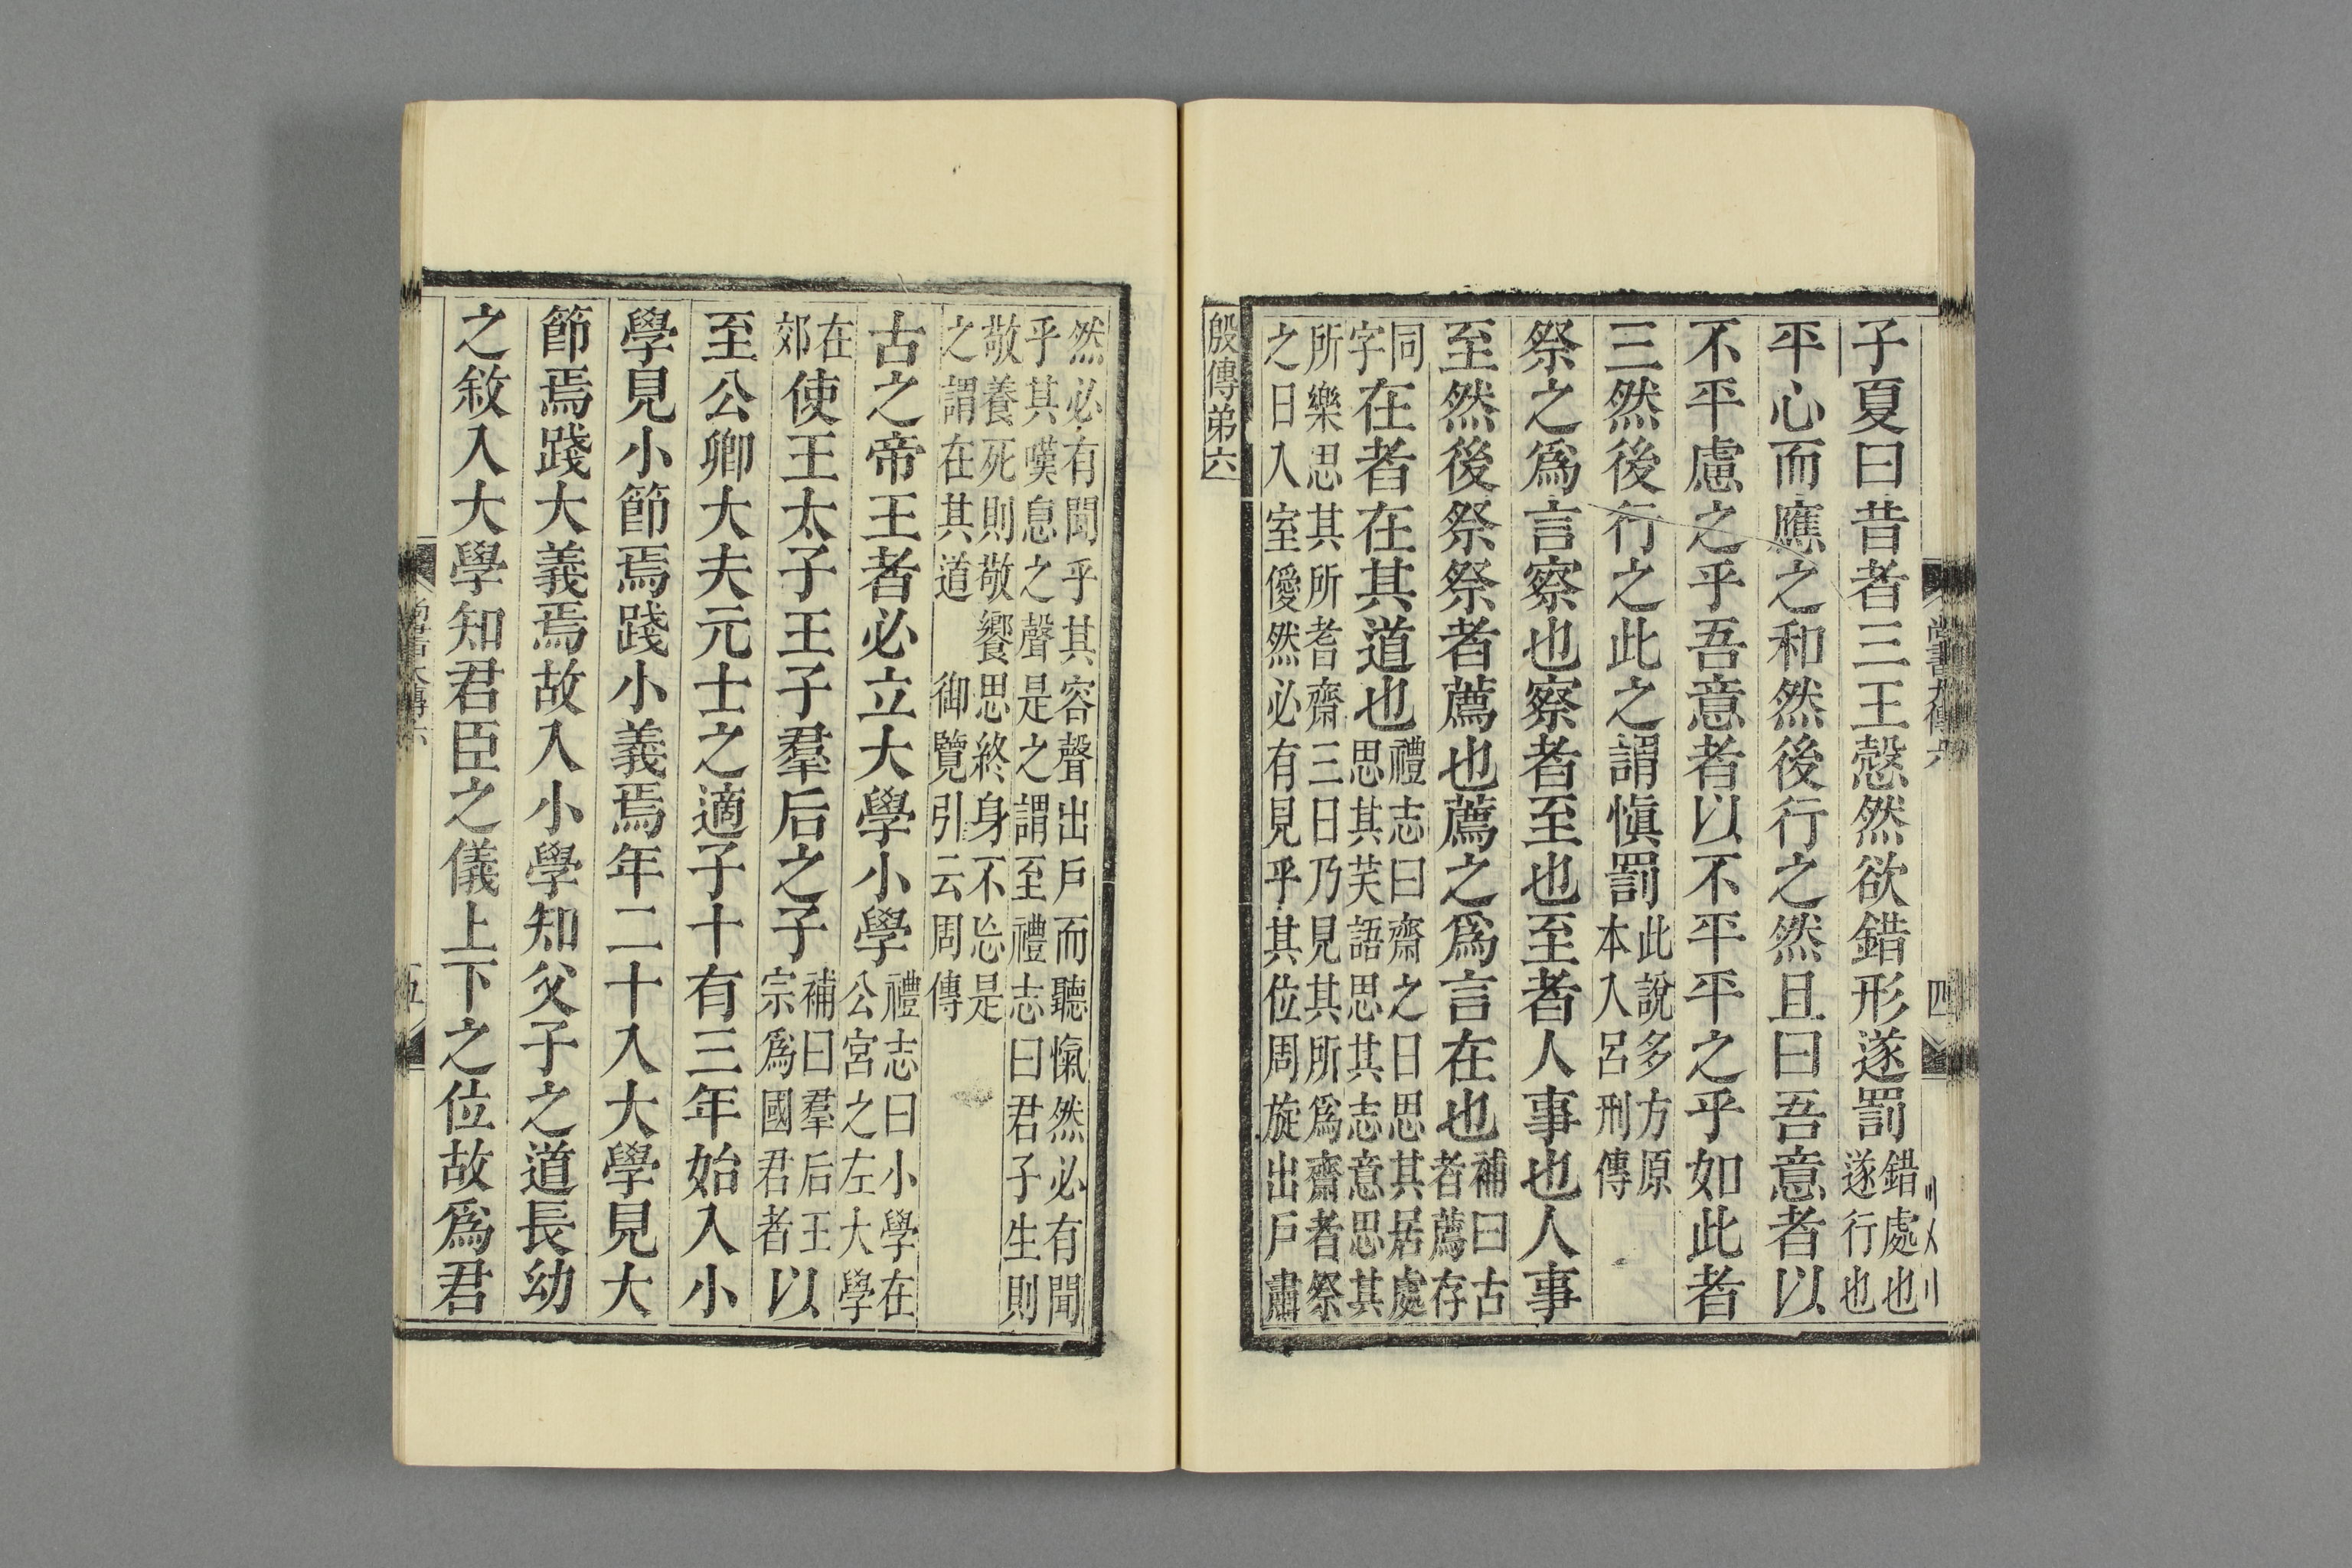 子夏曰昔者三王愨然欲錯形遂罰錯處也遂行也
平心而應之和然後行之然且曰吾意者以
不平慮之乎吾意者以不平平之乎如此者
三然後行之此之謂愼罰此說多方原本入呂刑傳
祭之爲言察也察者至也至者人事也人事
至然後祭祭者薦也薦之爲言在也補曰古者薦存
同字在者在其道也禮志曰齋之日思其居處思其芺語思其志意思其
所樂思其所耆齋三日乃見其所爲齋者祭之日入室僾然必有見乎其位周旋出戶肅
殷傳弟六
然必有聞乎其容聲出戶而聽愾然必有聞乎其嘆息之聲是之謂至禮志曰君子生則
敬養死則敬饗思終身不忘是之謂在其道 御覽引云周傳
古之帝王者必立大學小學禮志曰小學在公宮之左大學
在郊使王太子王子羣后之子補曰羣后王宗爲國君者以
至公卿大夫元士之適子十有三年始入小
學見小節焉踐小義焉年二十入大學見大
節焉踐大義焉故入小學知父子之道長幼
之敘入大學知君臣之儀上下之位故爲君